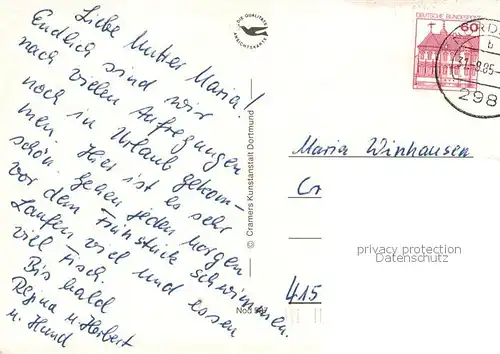 Liebe Mutter Maria!
Endlich sind wir
nach vielen Aufregungen
noch in Urlaub gekom-
men. Hier ist es sehr
schön. Gehen jeden Morgen
vor dem Frühstück schwimmen.
Laufen viel und essen
viel Fisch.
Bis bald
Regina u. Herbert
u. Hund
DIE QUALITÄTS
ANSICHTSKARTE
© Cramers Kunstanstalt Dortmund
DEUTSCHE BUNDESPOST
60
b
31.-8.85-
298
Maria Winhausen
Cr
415
privacy protection
Datenschutz